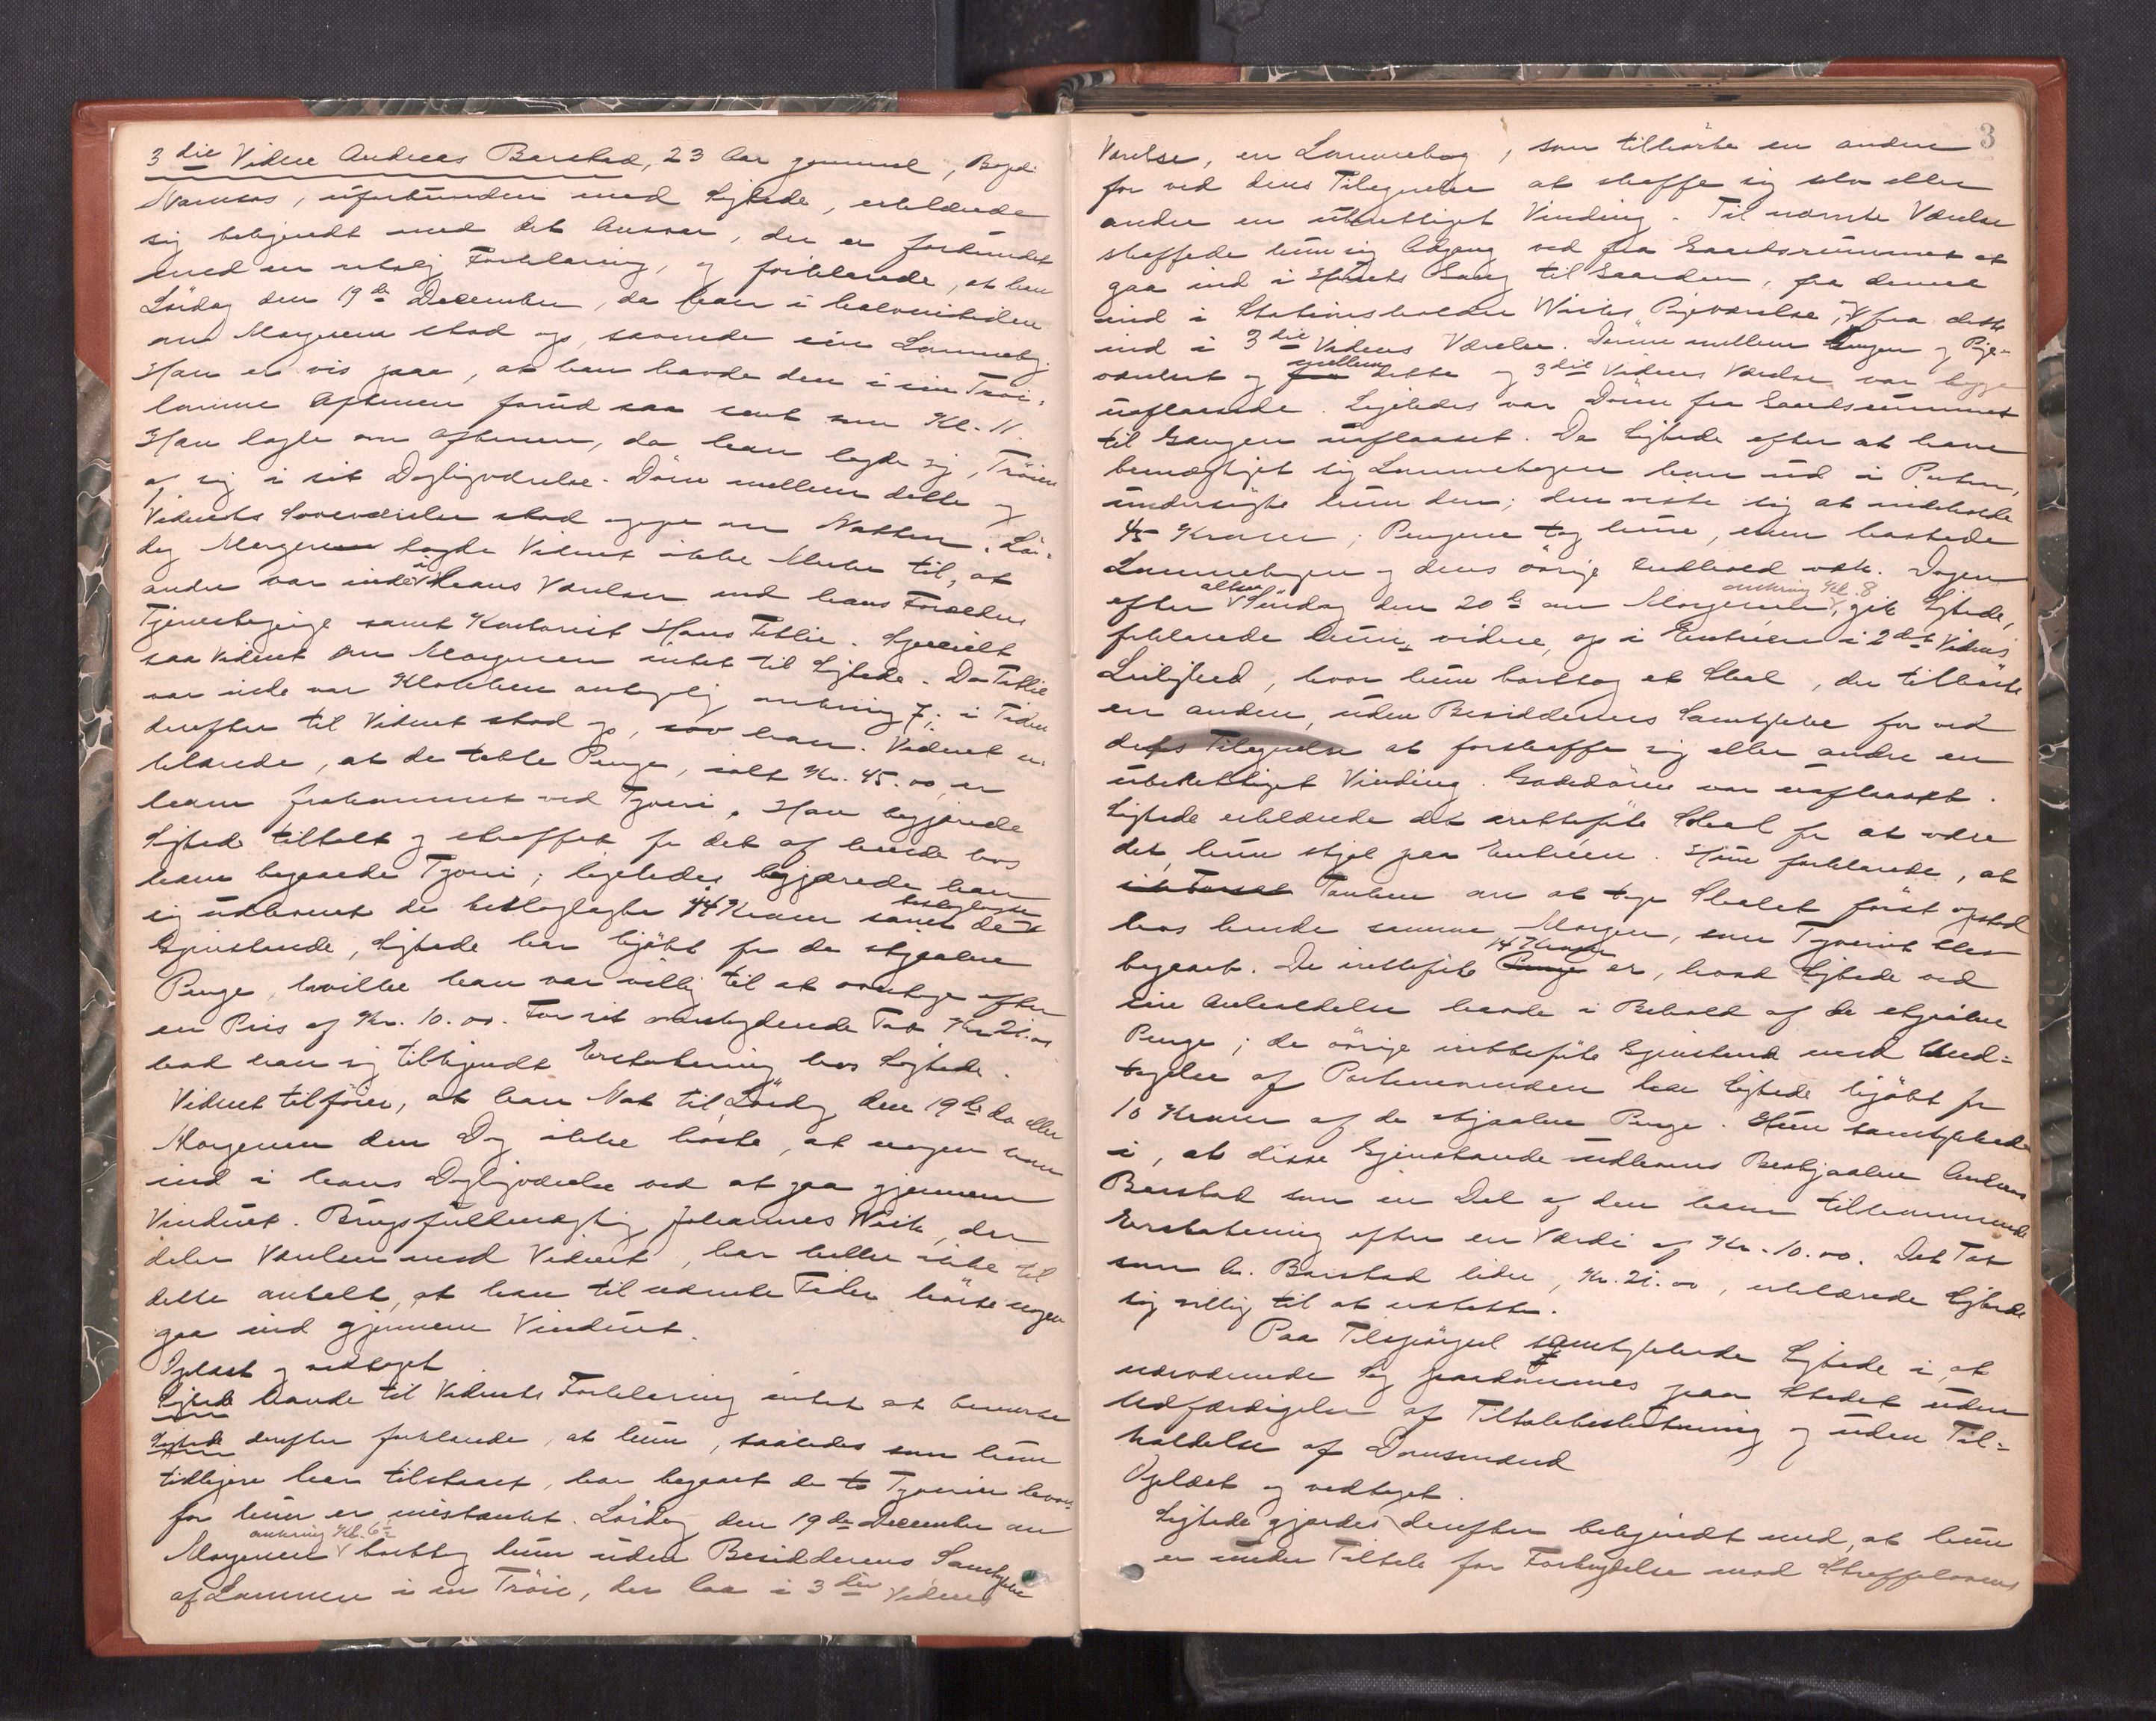 3die Vidne Andreas Barstad, 23 Aar gammel,
Namsos, uforbunden med Sigtede, erklærede
sig bekjendt med det Ansvar, der er forbundet
med en urolig Forklaring, og forklarede, at han
Lördag den 19de December, da han i
om Morgenen stod op, savnede sin Lommebog.
Han er vis paa, at han havde den i sin Tröi-
lomme Aftenen forud saa sent som Kl. 11.
Han lagde om Aftenen, da han lagde sig, Tröien
af sig i sit Dagligværelse. Dören mellem dette og
Vidnets Soveværelse stod oppe om Natten. Lör-
dag Morgen lagde Vidnet ikke Mærke til, at
andre var inde i hans Værelser end hans Forældres
Tjenestepige samt Kontorist Hans Tetlie. Specielt
saa Vidnet om Morgenen intet til Sigtede. Da Tetlie
var inde var Klokken antagelig omkring 7; i Tiden
derefter til Vidnet stod op, sov han. Vidnet er-
klærede, at de tabte Penge, ialt Kr. 45.00, er
ham frakommet ved Tyveri. Han begjærede
Sigtede tiltalt og straffet for det af hende hos
ham begaaede Tyveri; ligeledes begjærede han
sig udleveret de beslaglagte 14 Kroner samt de beslaglagte
Gjenstande, Sigtede har kjöbt for de stjaalne
Penge, hvilke han var villig til at overtage efter
en Pris af Kr. 10.00. For sit Tab Kr 21.00
bad han sig tilkjendt Erstatning hos Sigtede.
Vidnet tilföier, at han Nat til Lördag den 19de ds eller
Morgenen den Dag ikke hörte, at nogen kom
ind i hans Dagligværelse ved at gaa gjennem
Vinduet. Brugsfuldmægtig Johannes Wiik, der
deler Værelser med Vidnet, har heller ikke til
dette anta​lt, at han til nævnte Tider hörte nogen
gaa ind gjennem Vinduet.
Oplæst og vedtaget
Sigtede havde til Vidnets Forklaring intet at bemærke
Sigtede derefter forklarede, at hun, saaledes som hun
tidligere har tilstaaet, har begaaet de to Tyverier hvor-
for hun er mistænkt. Lördag den 19de December om
Morgenen omkring Kl. 6½ borttog hun uden Besidderens Samtykke
af Lommen i en Tröie, der laa i 3die Vidnes
3
Værelse, en Lommebog, som tilhörte en anden
for ved dens Tilegnelse at skaffe sig selv eller
andre en uberettiget Vinding. Til nævnte Værelse
skaffede hun sig Adgang ved fra Gaardsrummet at
gaa ind i Husets Gang til Gaarden, fra denne
ind i Stationsholder Wiiks Pigeværelse, og fra dette
ind i 3die Vidnes Værelse. Dörene mellem Gangen og Pige-
værelset og mellem dette og 3die Vidnes Værelse var begge
uaflaasede. Ligeledes var Dören fra Gaardsrummet
til Gangen uaflaaset. Da Sigtede efter at have
bemægtiget sig Lommebogen kom ud i Porten,
undersögte hun den; den viste sig at indeholde
45 Kroner; Pengene tog hun, men kastede
Lommebogen og dens övrige Indhold væk. Dagen
efter altsaa Söndag den 20de om Morgenen omkring Kl. 8, gik Sigtede,
forklarede hun videre, op i Entreen i 2det Vidnes
Leilighed, hvor hun borttog et Skal, der tilhörte
en anden, uden Besidderens Samtykke for ved
dets Tilegnelse at forskaffe sig eller andre en
uberettiget Vinding. Gadedören var uaflaaset.
Sigtede erklærede det iretteförte Skal for at være
det, hun stjal paa Entreen. Hun forklarede, at
Tanken om at tage Skalet först opstod
hos hende samme Morgen, som Tyveriet blev
begaaet. De irettefőrte 14 Kroner er, hvad Sigtede ved
sin Anholdelse havde i Behold af de stjaalne
Penge; de övrige iretteförte Gjenstand med Und-
tagelse af Portemonnæen har Sigtede kjöbt for
10 Kroner af de stjaalne Penge. Hun samtykkede
i, at disse Gjenstande udleveres Bestjaalne Andreas
Barstad som en Del af den ham tilkommende
Erstatning efter en Værdi af Kr. 10.00. Det Tab
som A. Barstad lider, Kr. 21.00, erklærede Sigtede
sig villig til at erstatte.
Paa Tilspörgsel samtykkede Sigtede i, at
nærværende Sag paadömmes paa Stedet uden
Udfærdigelse af Tiltalebeslutning og uden Til-
kaldelse af Domsmænd
Oplæst og vedtaget.
Sigtede gjordes derefter bekjendt med, at hun
er under Tiltale for Forbrydelse mod Straffelovens